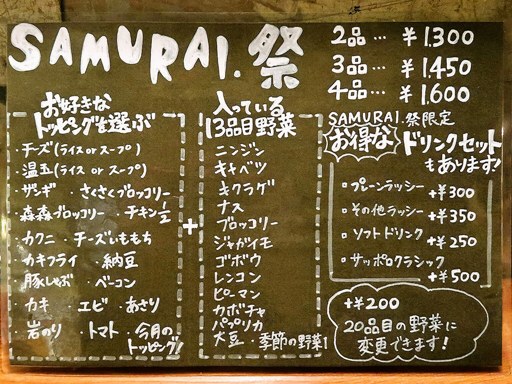 SAMURAI.祭
2品… ¥1.300
3品… ¥1,450
4品… ¥1,600
お好きな
トッピングを選ぶ
・チーズ(ライス or スープ)
・温玉(ライス or スープ)
・ザンギ ・さくさくブロッコリー
・森森ブロッコリー ・チキン1/2
・カクニ ・チーズいももち
・カキフライ ・納豆
・豚しゃぶ ・ベーコン
・カキ ・エビ ・あさり
・岩のり ・トマト ・今月の
トッピング!
+
入っている
13品目野菜
ニンジン
キャベツ
キクラゲ
ナス
ブロッコリー
ジャガイモ
ゴボウ
レンコン
ピーマン
カボチャ
パプリカ
大豆・季節の野菜1
SAMURAI.祭限定
お得な ドリンクセット
もあります!
・プレーンラッシー +¥300
・その他ラッシー +¥350
・ソフトドリンク +¥250
・サッポロクラシック
+¥500
+¥200
20品目の野菜に
変更できます!